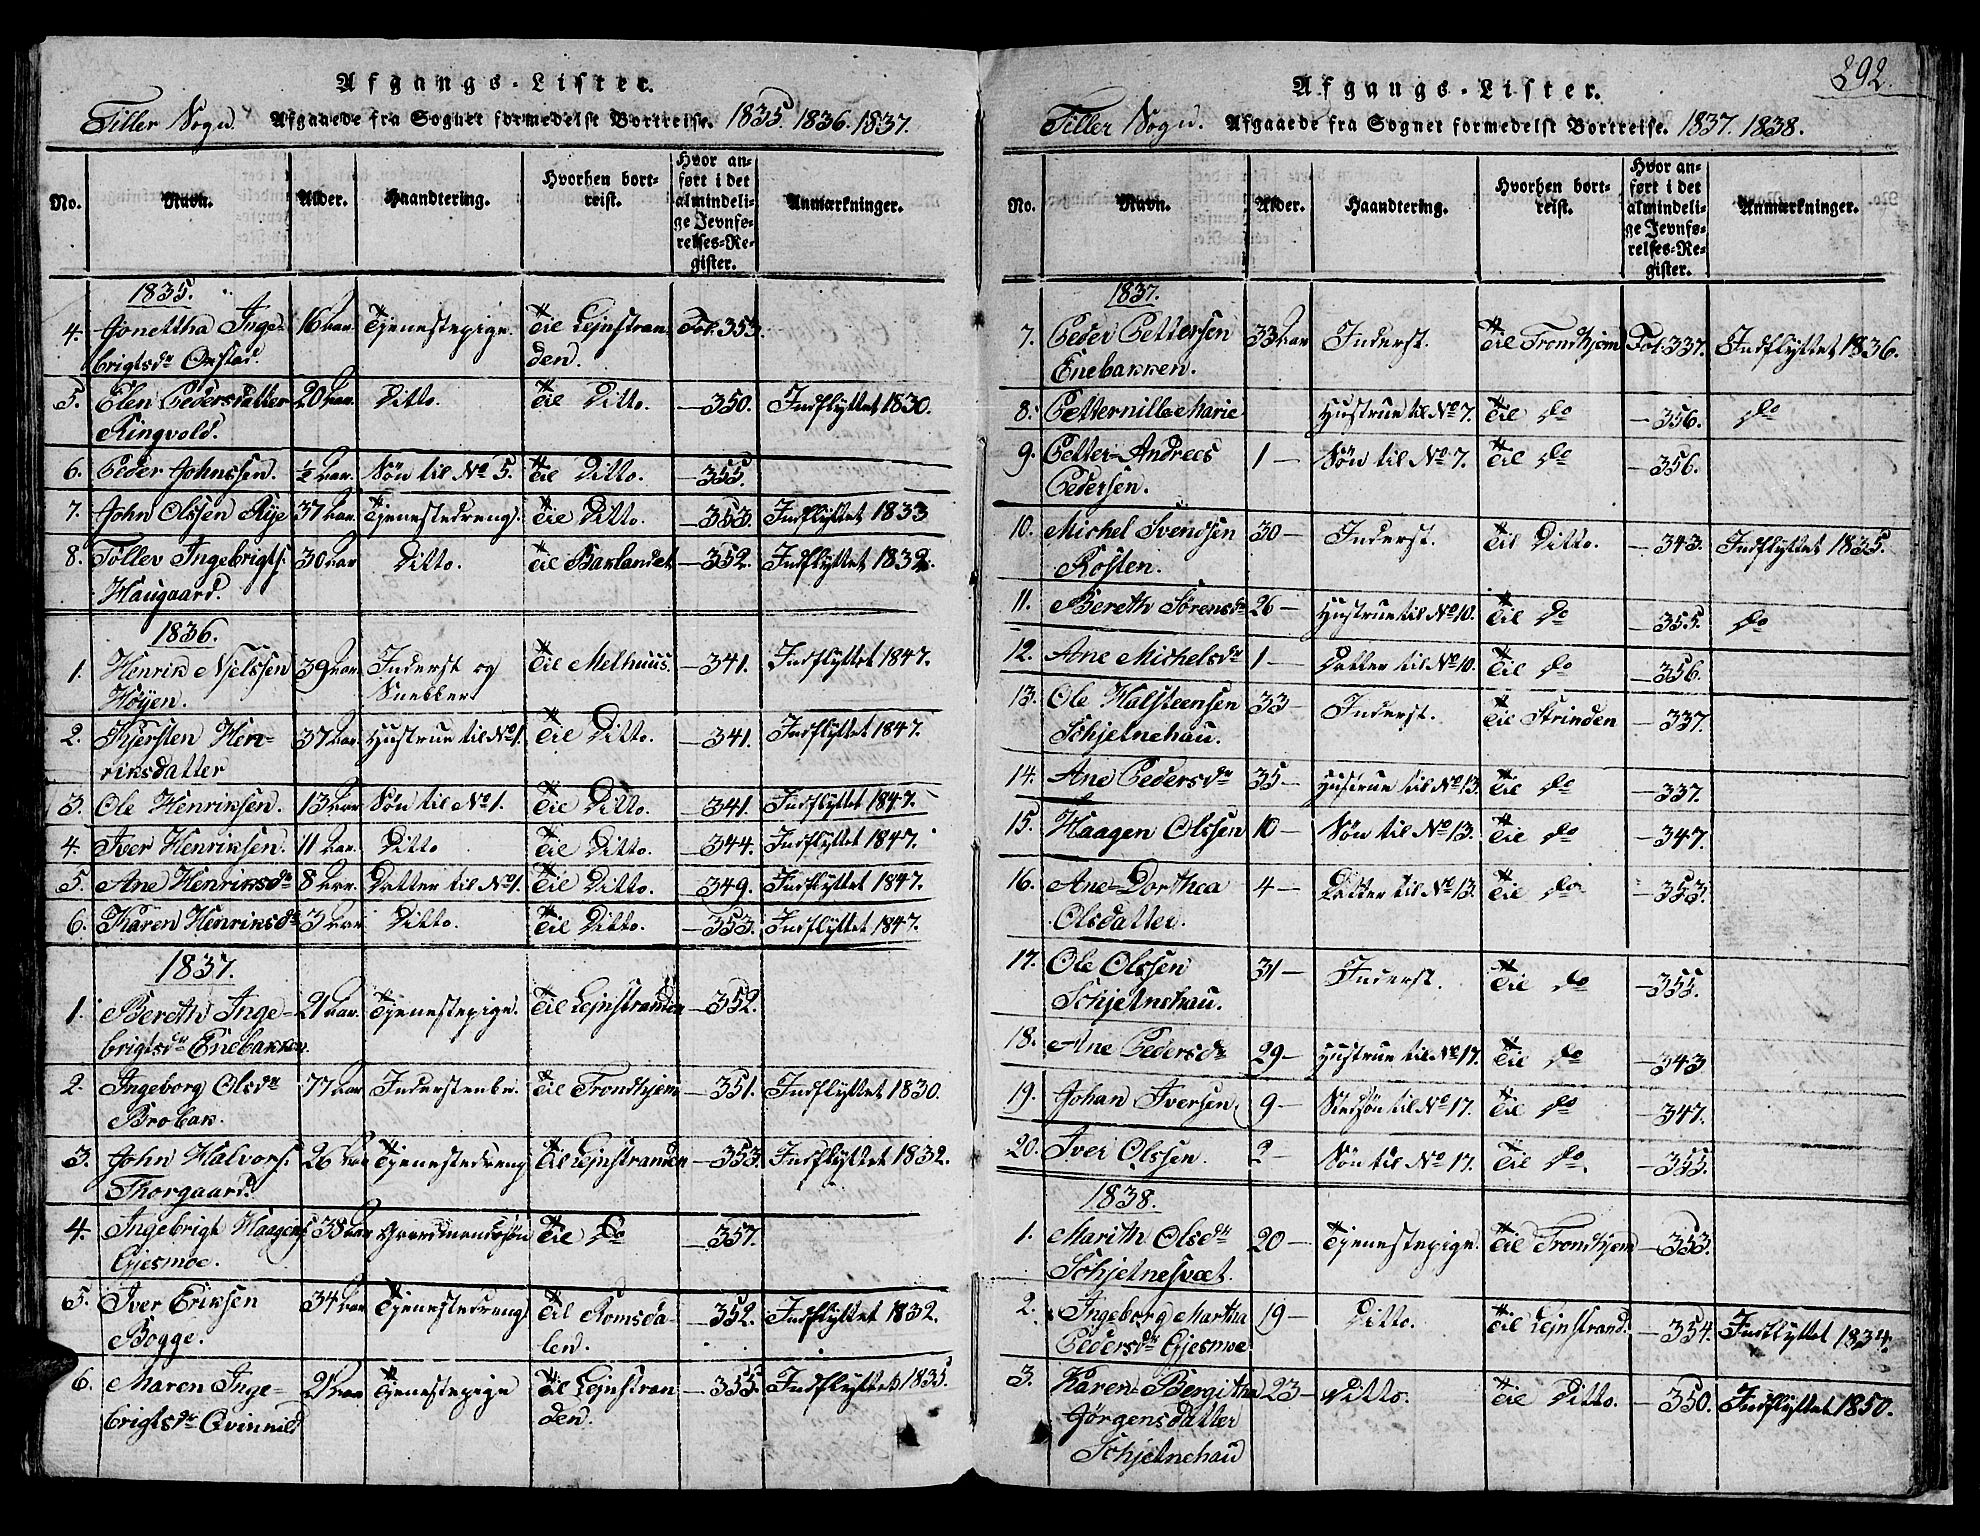 Afgangs-Lister.
Tiller Sogn. Afgaaede fra Sognet formedelst Bortreise. 1835. 1836. 1837.
No. Navn. Alder. Haandtering. Hvorhen bortreist. Hvor anført i det almindelige Jevnførelses-Register. Anmærkninger.
1835.
4. Jonettha Inge- 16 Aar Tjenestepige. Til Lejnstran- Fol. 353.
brigtsdr Oxstad. den.
5. Elen Pedersdatter 20 Aar. Ditto. Til Ditto. —350. Indflyttet 1830.
Ringvold.
6. Peder Johnssen. ½ Aar. Søn til No 5. Til Ditto. —355.
7. John Olssen Rye 37 Aar. Tjenestedreng. Til Ditto. —353. Indflyttet 1833
8. Tollev Ingebrigts. 30 Aar Ditto. Til Baklandet —352. Indflyttet 1832.
Haugaard.
1836.
1. Henrik Njelssen 39 Aar Inderst og Til Melhuus. —341. Indflyttet 1847.
Høyen. Snedker
2. Kjersten Hen- 37 Aar. Hustrue til No 1. Til Ditto. —341. Indflyttet 1847.
riksdatter
3. Ole Henriksen. 13 Aar Søn til No 1. Til Ditto. —341. Indflyttet 1847.
4. Iver Henriksen. 11 Aar. Ditto Til Ditto. —344. Indflyttet 1847.
5. Ane Henriksdr 8 Aar. Datter til No 1. Til Ditto. —349. Indflyttet 1847.
6. Karen Henriksdr 3 Aar Ditto. Til Ditto. —353. Indflyttet 1847.
1837.
1. Bereth Inge- 21 Aar. Tjenestepige. Til Lejnstranden —352.
brigtsdr Enebakken.
2. Ingeborg Olsdr 77 Aar Til Trondhjem —351. Indflyttet 1830.
Brobak.
3. John Halvors. 26 Aar Tjenestedreng Til Lejnstranden —353. Indflyttet 1832.
Thorgaard.
4. Ingebrigt Haagens. 38 Aar Gaardmandssøn Til Do —357.
Gjesmoe.
5. Iver Eriksen 34 Aar Tjenestedreng Til Romsda- —352. Indflyttet 1832.
Bogge. len.
6. Maren Inge- 21 Aar Tjenestepige Til Lejnstran- —355. Indflyttet 1835.
brigtsdr Qvinnild den.
292.
Afgangs-Lister.
Tiller Sogn. Afgaaede fra Sognet formedelst Bortreise. 1837. 1838.
No. Navn. Alder. Haandtering. Hvorhen bortreist. Hvor anført i det almindelige Jevnførelses-Register. Anmærkninger.
1837.
7. Peder Pettersen 33 Aar Inderst. Til Trondhjem Fol. 337. Indflyttet 1836.
Enebakken.
8. Petternille Marie Hustrue til No 7. Til Do —356. Do
9. Petter Andreas 1— Søn til No 7. Til Do —356.
Pedersen.
10. Michel Svendsen 30— Inderst. Til Ditto. —343. Indflyttet 1835.
Rosten.
11. Bereth Sørensdr 26— Hustrue til No 10. Til Do —355. Do
12. Ane Michelsdr 1— Datter til No 10. Til Do —356.
13. Ole Halsteensen 33— Inderst. Til Strinden —337.
Schjetnehau.
14. Ane Pedersdr 35— Hustrue til No 13. Til Do —337.
15. Haagen Olssen 10— Søn til No 13. Til Do —347.
16. Ane Dorthea 4— Datter til No 13. Til Do —353.
Olsdatter.
17. Ole Olssen 31— Inderst. Til Do —355.
Schjetnehau.
18. Ane Pedersdr 29— Hustrue til No 17. Til Do —343
19. Johan Iversen 9— Stedsøn til No 17. Til Do —347.
20. Iver Olssen. 2— Søn til No 17. Til Do. —355.
1838.
1. Marith Olsdr 20— Tjenestepige. Til Trondhjem —353.
Schjetnesvæt.
2. Ingeborg Martha 19— Ditto. Til Lejnstrand. —354. Indflyttet 1834.
Pedersdr Gjesmoe
3. Karen Bergitha 23— Ditto. Til Ditto. —350. Indflyttet 1850.
Jørgensdatter
Schjetnehau